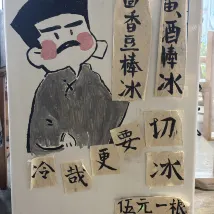 黄酒棒冰
茴香豆棒冰
冷哉更要切冰
伍元一根